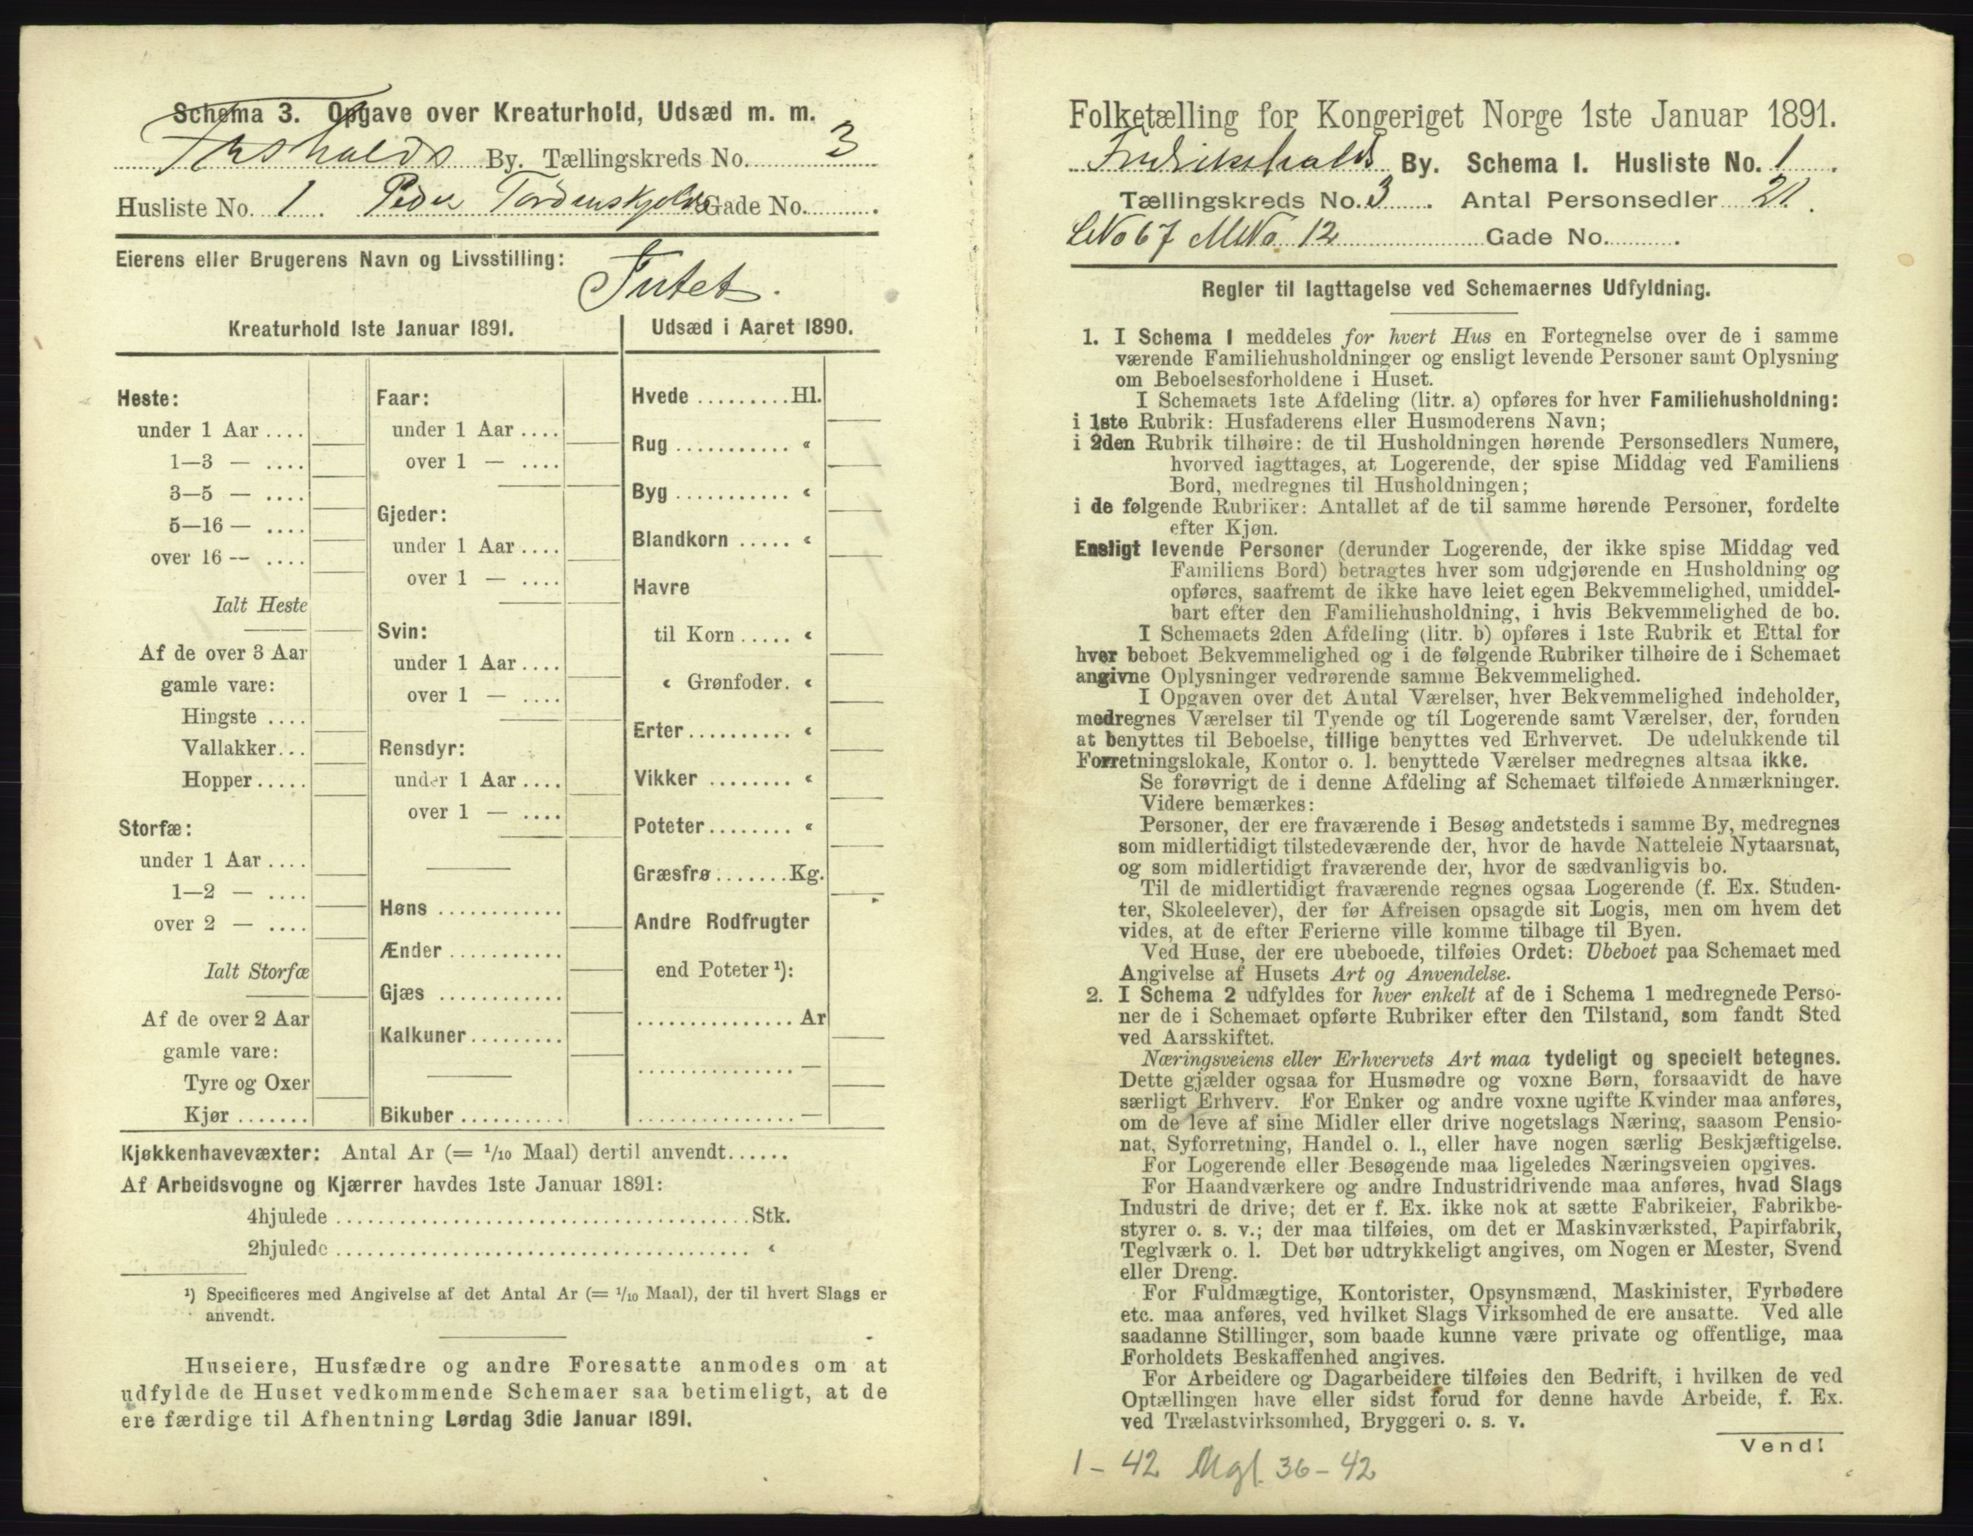 Schema 3. Opgave over Kreaturhold, Udsæd m. m.
Frshalds By. Tællingskreds No. 3
Husliste No. 1. Peder Tordenskjolds Gade No.
Eierens eller Brugerens Navn og Livsstilling:
Intet.
Kreaturhold 1ste Januar 1891.
Heste:
under 1 Aar ....
1—3 — ....
3—5 — ....
5—16 — ....
over 16 — ....
Ialt Heste
Af de over 3 Aar
gamle vare:
Hingste ....
Vallakker...
Hopper.....
Storfæ:
under 1 Aar ....
1—2 — ....
over 2 — ....
Ialt Storfæ
Af de over 2 Aar
gamle vare:
Tyre og Oxer
Kjør .......
Faar:
under 1 Aar ....
over 1 — ....
Gjeder:
under 1 Aar ....
over 1 — ....
Svin:
under 1 Aar ....
over 1 — ....
Rensdyr:
under 1 Aar ....
over 1 — ....
Høns ............
Ænder ...........
Gjæs ............
Kalkuner.........
Bikuber ..........
Udsæd i Aaret 1890.
Hvede .........Hl.
Rug ........... «
Byg ........... «
Blandkorn ..... «
Havre
til Korn ..... «
« Grønfoder. «
Erter.......... «
Vikker ........ «
Poteter........ «
Græsfrø .......Kg.
Andre Rodfrugter
end Poteter ¹):
............... Ar
............... —
............... —
Kjøkkenhavevæxter: Antal Ar (= 1/10 Maal) dertil anvendt......
Af Arbeidsvogne og Kjærrer havdes 1ste Januar 1891:
4hjulede ........................................Stk.
2hjulede ........................................ «
¹) Specificeres med Angivelse af det Antal Ar (= 1/10 Maal), der til hvert Slags er
anvendt.
Huseiere, Husfædre og andre Foresatte anmodes om at
udfylde de Huset vedkommende Schemaer saa betimeligt, at de
ere færdige til Afhentning Lørdag 3die Januar 1891.
Folketælling for Kongeriget Norge 1ste Januar 1891.
Fredrikshalds By. Schema I. Husliste No. 1.
Tællingskreds No. 3. Antal Personsedler 21.
LNo 67 MNo 12 Gade No.
Regler til Iagttagelse ved Schemaernes Udfyldning.
1. I Schema 1 meddeles for hvert Hus en Fortegnelse over de i samme
værende Familiehusholdninger og ensligt levende Personer samt Oplysning
om Beboelsesforholdene i Huset.
I Schemaets 1ste Afdeling (litr. a) opføres for hver Familiehusholdning:
i 1ste Rubrik: Husfaderens eller Husmoderens Navn;
i 2den Rubrik tilhøire: de til Husholdningen hørende Personsedlers Numere,
hvorved iagttages, at Logerende, der spise Middag ved Familiens
Bord, medregnes til Husholdningen;
i de følgende Rubriker: Antallet af de til samme hørende Personer, fordelte
efter Kjøn.
Ensligt levende Personer (derunder Logerende, der ikke spise Middag ved
Familiens Bord) betragtes hver som udgjørende en Husholdning og
opføres, saafremt de ikke have leiet egen Bekvemmelighed, umiddel-
bart efter den Familiehusholdning, i hvis Bekvemmelighed de bo.
I Schemaets 2den Afdeling (litr. b) opføres i 1ste Rubrik et Ettal for
hver beboet Bekvemmelighed og i de følgende Rubriker tilhøire de i Schemaet
angivne Oplysninger vedrørende samme Bekvemmelighed.
I Opgaven over det Antal Værelser, hver Bekvemmelighed indeholder,
medregnes Værelser til Tyende og til Logerende samt Værelser, der, foruden
at benyttes til Beboelse, tillige benyttes ved Erhvervet. De udelukkende til
Forretningslokale, Kontor o. l. benyttede Værelser medregnes altsaa ikke.
Se forøvrigt de i denne Afdeling af Schemaet tilføiede Anmærkninger.
Videre bemærkes:
Personer, der ere fraværende i Besøg andetsteds i samme By, medregnes
som midlertidigt tilstedeværende der, hvor de havde Natteleie Nytaarsnat,
og som midlertidigt fraværende der, hvor de sædvanligvis bo.
Til de midlertidigt fraværende regnes ogsaa Logerende (f. Ex. Studen-
ter, Skoleelever), der før Afreisen opsagde sit Logis, men om hvem det
vides, at de efter Ferierne ville komme tilbage til Byen.
Ved Huse, der ere ubeboede, tilføies Ordet: Ubeboet paa Schemaet med
Angivelse af Husets Art og Anvendelse.
2. I Schema 2 udfyldes for hver enkelt af de i Schema 1 medregnede Perso-
ner de i Schemaet opførte Rubriker efter den Tilstand, som fandt Sted
ved Aarsskiftet.
Næringsveiens eller Erhvervets Art maa tydeligt og specielt betegnes.
Dette gjælder ogsaa for Husmødre og voxne Børn, forsaavidt de have
særligt Erhverv. For Enker og andre voxne ugifte Kvinder maa anføres,
om de leve af sine Midler eller drive nogetslags Næring, saasom Pensio-
nat, Syforretning, Handel o. l., eller have nogen særlig Beskjæftigelse.
For Logerende eller Besøgende maa ligeledes Næringsveien opgives.
For Haandværkere og andre Industridrivende maa anføres, hvad Slags
Industri de drive; det er f. Ex. ikke nok at sætte Fabrikeier, Fabrikbe-
styrer o. s. v.; der maa tilføies, om det er Maskinværksted, Papirfabrik,
Teglværk o. l. Det bør udtrykkeligt angives, om Nogen er Mester, Svend
eller Dreng.
For Fuldmægtige, Kontorister, Opsynsmænd, Maskinister, Fyrbødere
etc. maa anføres, ved hvilket Slags Virksomhed de ere ansatte. Ved alle
saadanne Stillinger, som baade kunne være private og offentlige, maa
Forholdets Beskaffenhed angives.
For Arbeidere og Dagarbeidere tilføies den Bedrift, i hvilken de ved
Optællingen have eller sidst forud for denne havde Arbeide, f. Ex.
ved Trælastvirksomhed, Bryggeri o. s. v.
Vend!
1 - 42 Mgl. 36 - 42